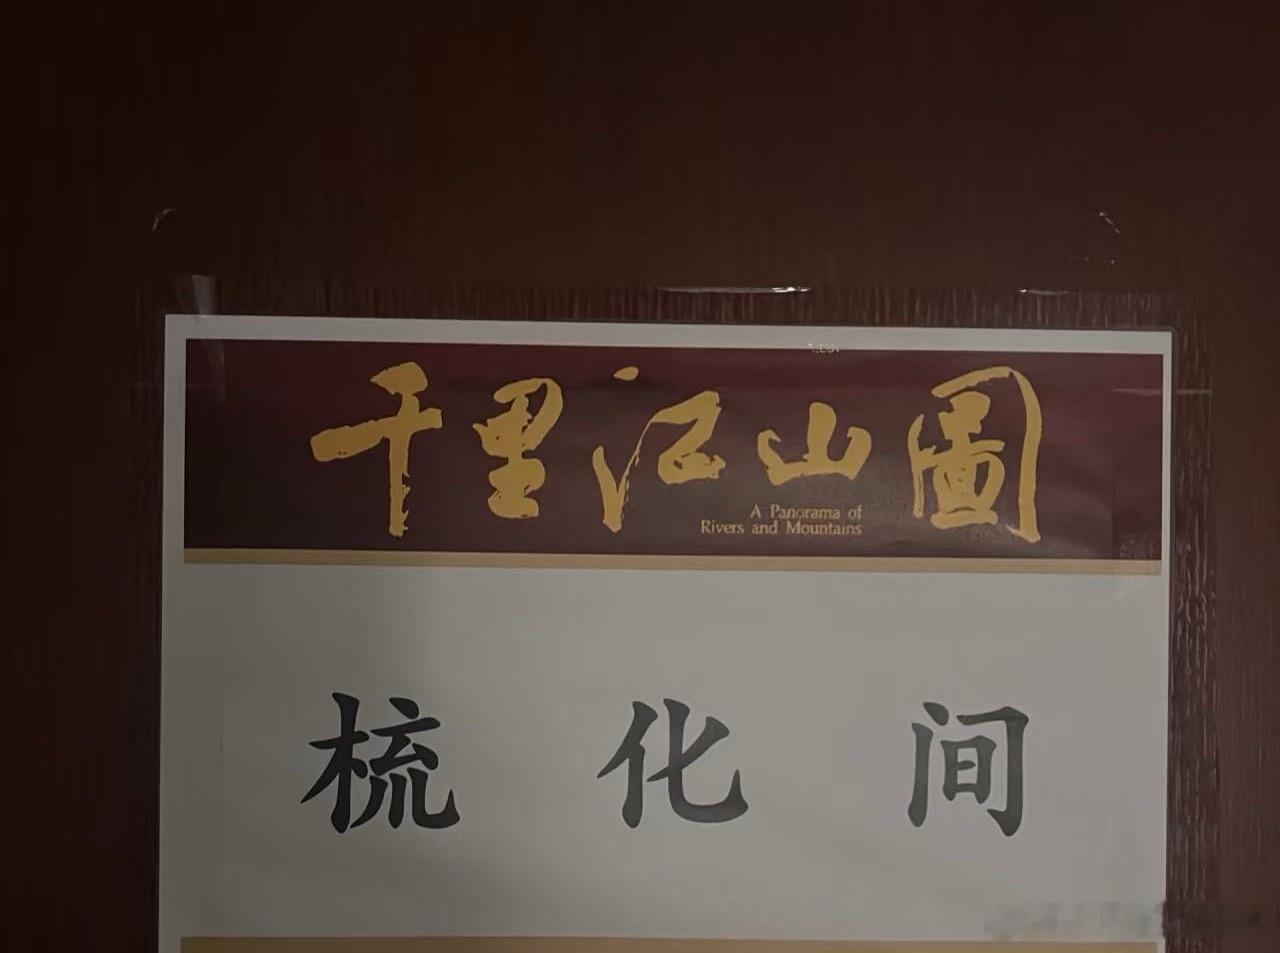 千里江山圖
A Panorama of
Rivers and Mountains
梳化间